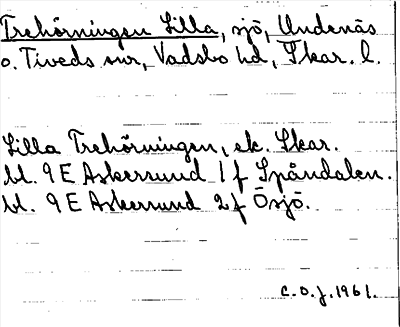 Trehörningen Lilla, sjö, Undenäs
o. Tiveds snr, Vadsbo hd, Skar. l.
Lilla Trehörningen, ek. Skar.
bl. 9E Askersund 1f Spåndalen.
bl. 9E Askersund 2f Ösjö.
C.O.J. 1961.